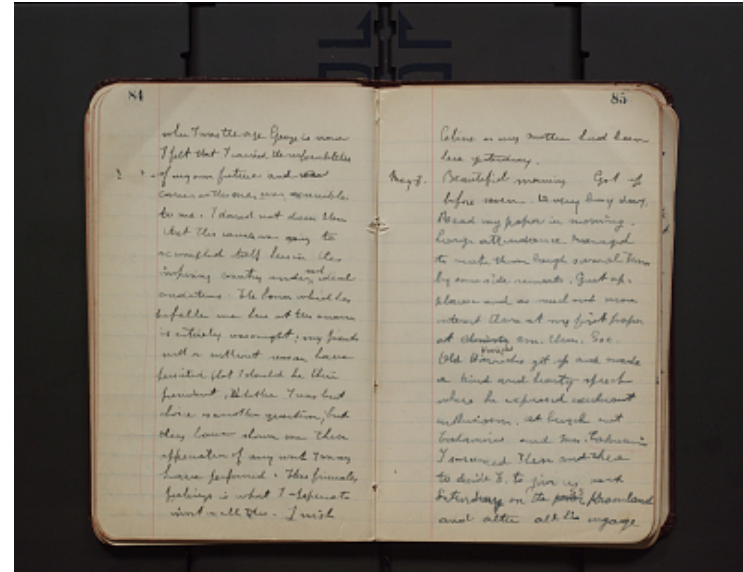 84
when I was the age George is now
I felt that I carried the responsibilities
of my own future and
career in the
to me. I dared not dream then
that this career was going to
accomplish itself here in this
inspiring country under such ideal
conditions. The honor which has
befallen me here at this moment
is entirely unsought; my friends
with or without reason have
persisted that I should be their
president. Whether I was best
choice is another question, but
they have shown me their
appreciation of any work I may
have performed. This friendly
feelings is what I appreciate
most in all this. I wish
85
Celine or my mother had been
here yesterday.
May 8. Beautiful morning Got up
before seven. A very busy day.
Read my paper in morning.
Large attendance managed
to make them laugh several times
by some side remarks. Great ap-
plause and as much and more
interest than at my first paper
at am. Chem. Soc.
Old got up and made
a kind and hearty speech
where he expressed exuberant
enthusiasm. At lunch met
and Mrs.
I induced them
to decide to give us next
Saturday on the
and after all to engage